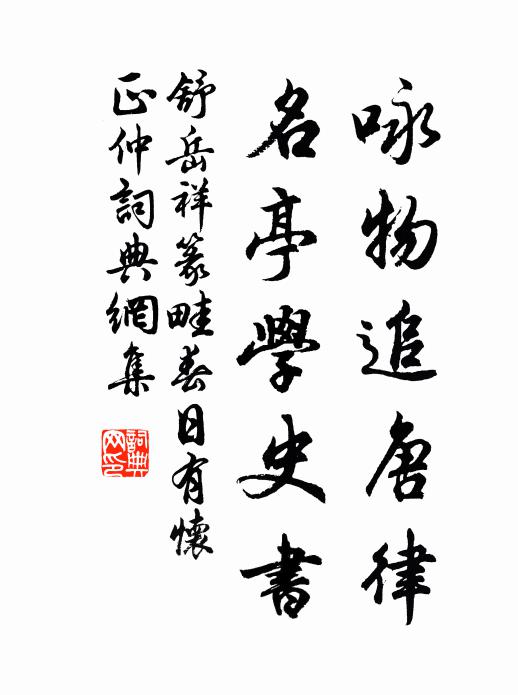 咏物追唐律
名亭學史書
舒岳祥篆畦春日有懷
正仲詞典網集
詞典
网印